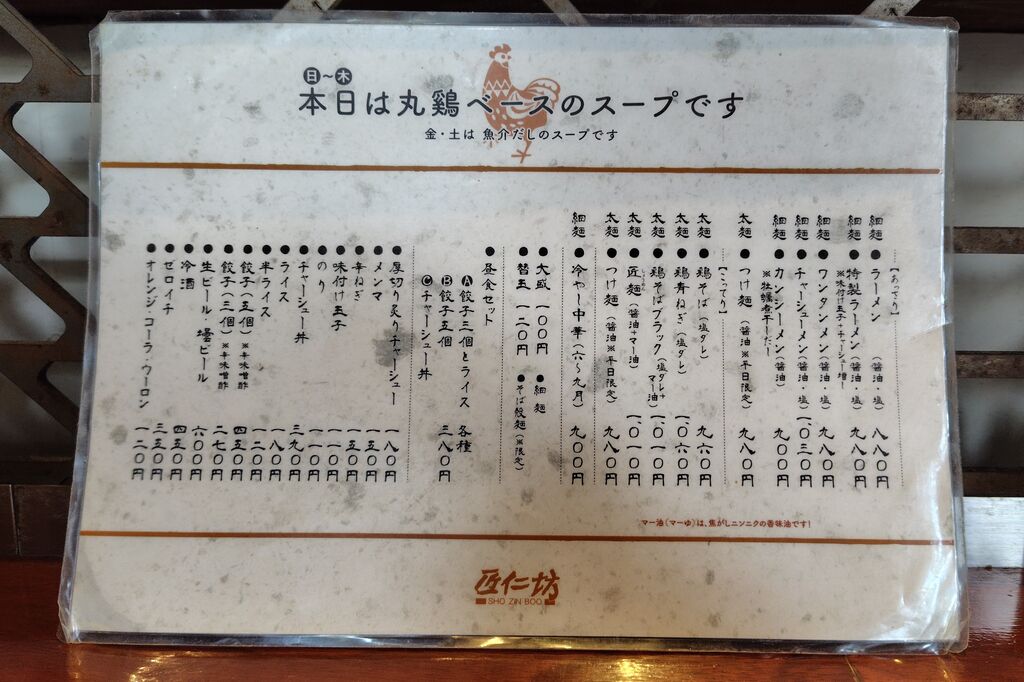 日〜木
本日は丸鶏ベースのスープです
金・土は 魚介だしのスープです
【あっさり】
細麺 ●ラーメン（醤油・塩） 八八〇円
細麺 ●特製ラーメン（醤油・塩） 九八〇円
※味付け玉子+チャーシュー増し
細麺 ●ワンタンメン（醤油・塩） 九八〇円
細麺 ●チャーシューメン（醤油・塩） 一、〇三〇円
細麺 ●カンシーメン（醤油） 九〇〇円
※牡蠣煮干しだし
太麺 ●つけ麺（醤油※平日限定） 九八〇円
【こってり】
太麺 ●鶏そば（塩タレ） 九六〇円
太麺 ●鶏青ねぎ（塩タレ） 一、〇六〇円
太麺 ●鶏そばブラック（塩タレ+マー油） 一、〇一〇円
太麺 ●匠麺（醤油+マー油） 一、〇一〇円
太麺 ●つけ麺（醤油※平日限定） 九八〇円
細麺 ●冷やし中華（六〜九月） 九〇〇円
●大盛 一〇〇円 ●細麺
●替玉 一二〇円 ●そば殻麺（※限定）
●昼食セット
Ⓐ餃子三個とライス 各種
Ⓑ餃子五個 三八〇円
Ⓒチャーシュー丼
●厚切り炙りチャーシュー 一八〇円
●メンマ 一五〇円
●辛ねぎ 一五〇円
●味付け玉子 一一〇円
●のり 一一〇円
●チャーシュー丼 三九〇円
●ライス 一八〇円
●半ライス 一二〇円
●餃子（五個）※辛味噌酢 四五〇円
●餃子（三個）※辛味噌酢 二七〇円
●生ビール・壜ビール 六〇〇円
●冷酒 四五〇円
●ゼロイチ 三五〇円
●オレンジ・コーラ・ウーロン 一二〇円
マー油（マーゆ）は、焦がしニンニクの香味油です！
匠仁坊
SHO ZIN BOO